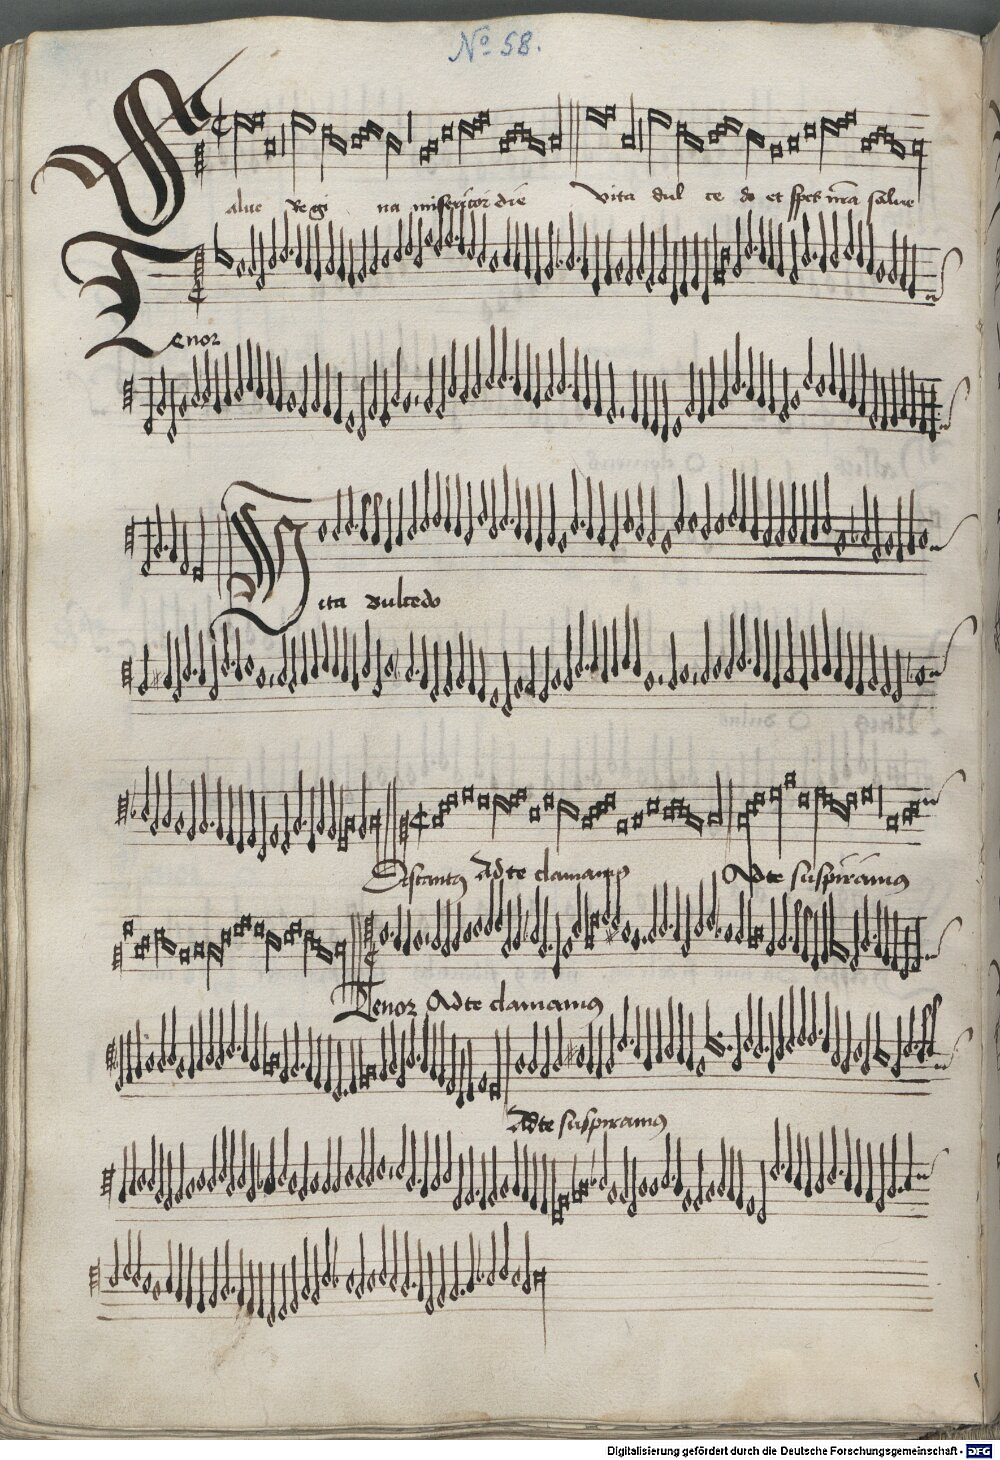 No 58.
Salue Regi na misericordie Vita dul ce do et spes nra salue
Tenor
Vita dulcedo
Discantus Ad te clamamus Ad te suspiramus
Tenor Ad te clamamus
Ad te suspiramus
Digitalisierung gefördert durch die Deutsche Forschungsgemeinschaft - DFG